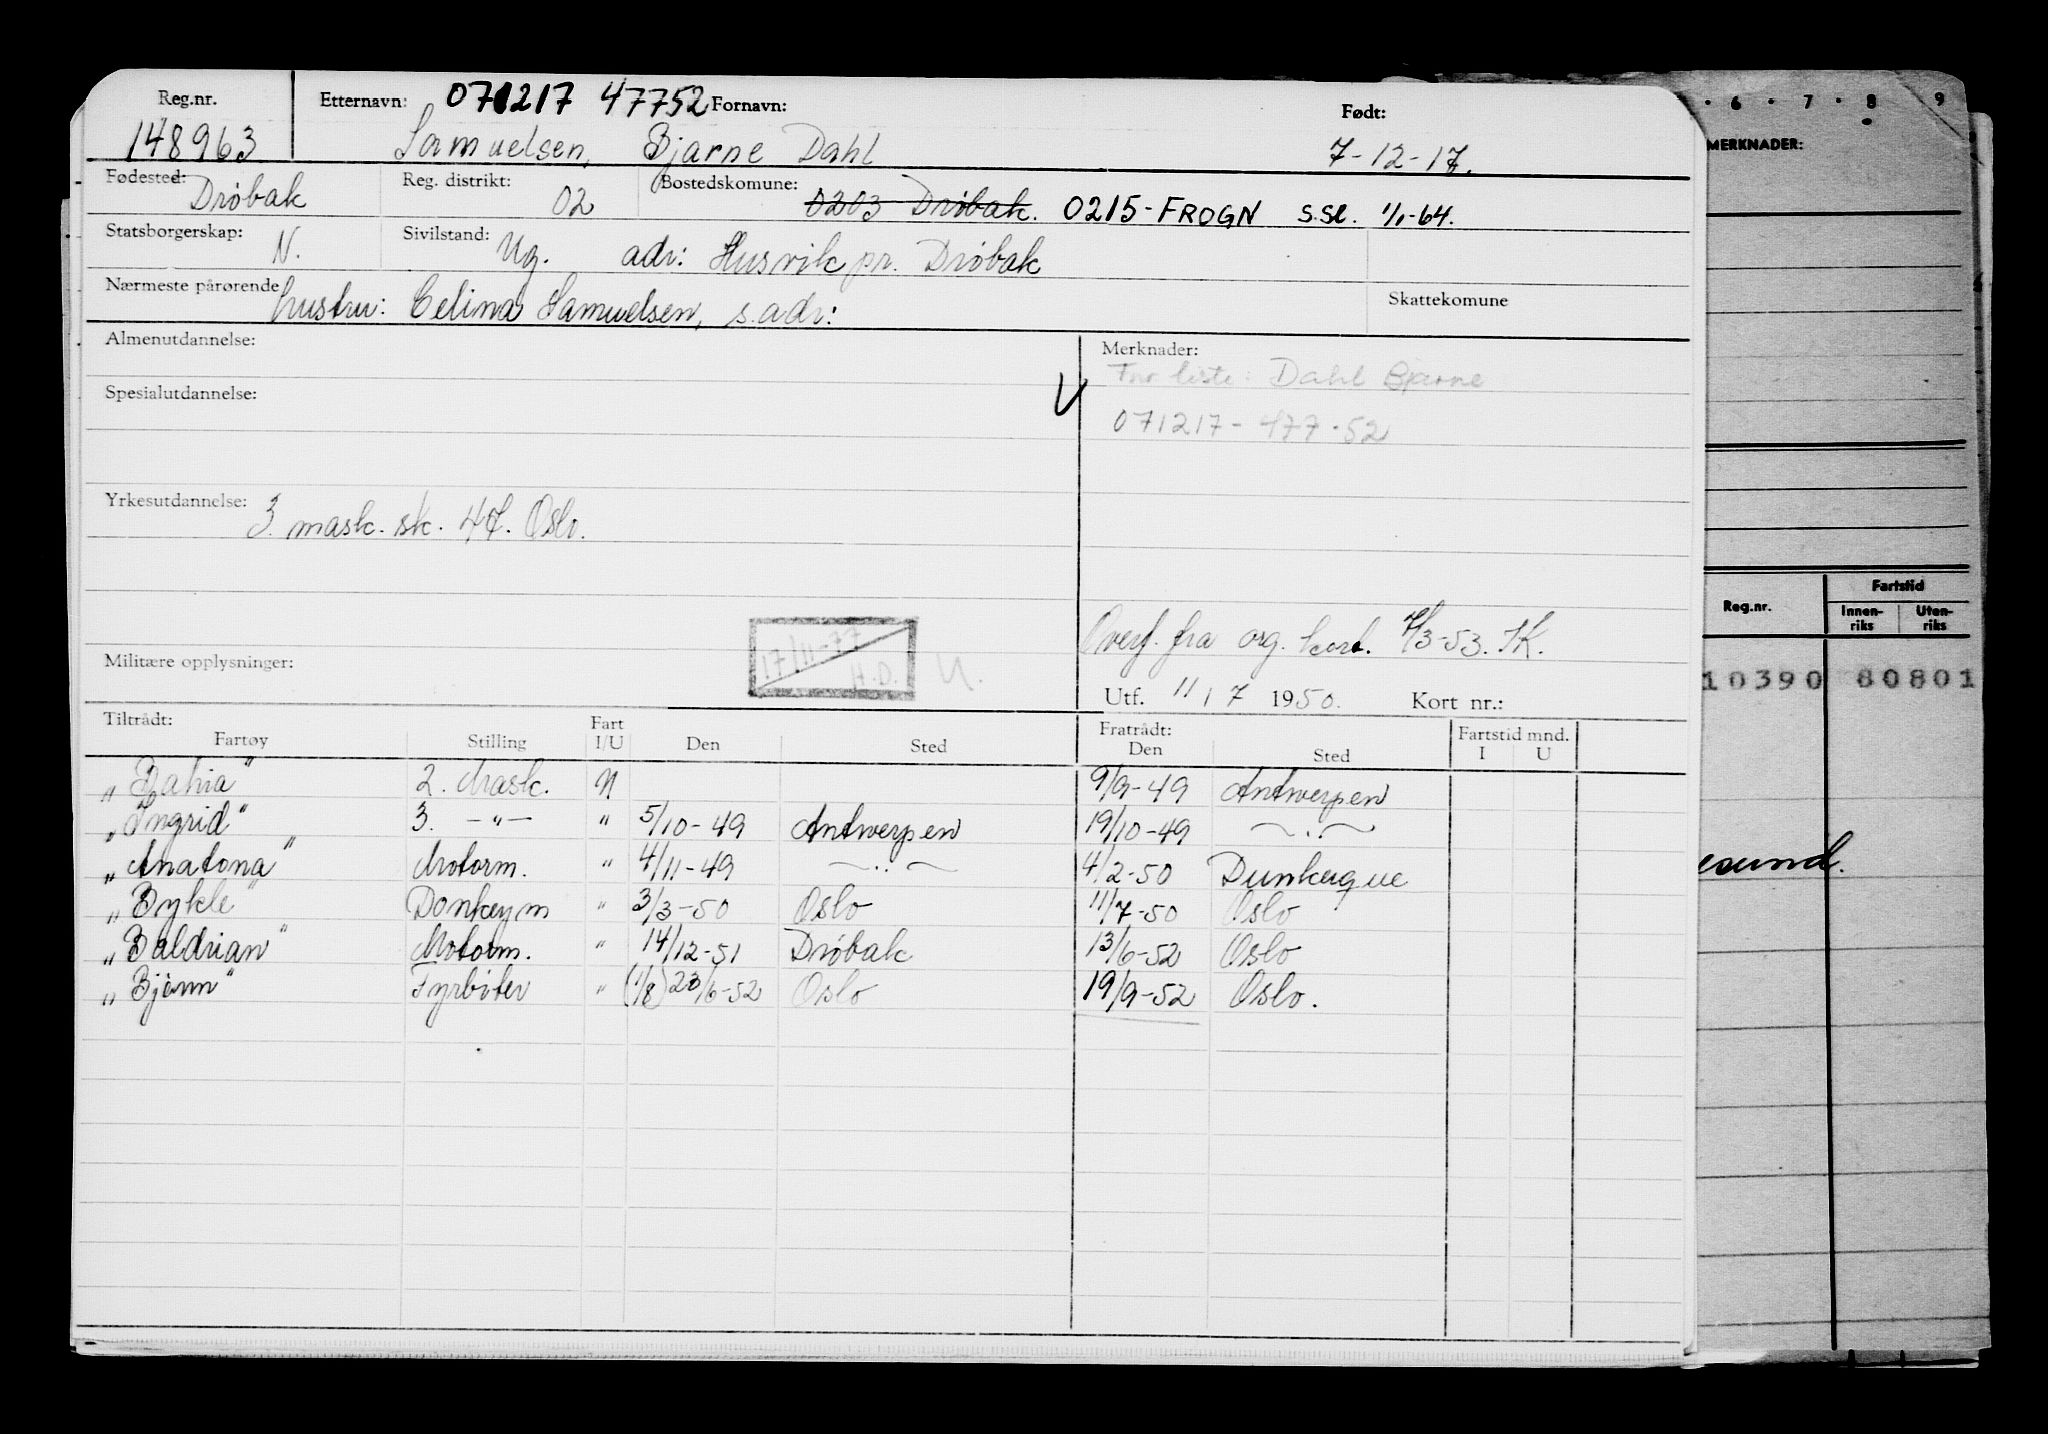 Reg.nr. Etternavn: 071217 47752 Fornavn: Født:
148963 Samuelsen, Bjarne Dahl 7-12-17.
Fødested: Drøbak Reg. distrikt: 02 Bostedskomune: 0203 Drøbak. 0215-FROGN s.sl. 1/1-64.
Statsborgerskap: N. Sivilstand: Ug. adr: Husvik pr. Drøbak
Nærmeste pårørende hustru: Celina Samuelsen, s.adr: Skattekomune
Almenutdannelse: Merknader:
Fnr liste: Dahl Bjarne
Spesialutdannelse:
071217-477.52
Yrkesutdannelse: 3. mask. sk. 47. Oslo.
17/11-77
H.D. U.
Overf. fra org. kort. 7/3-53. SK.
Militære opplysninger:
Utf. 11/7 1950. Kort nr.:
Tiltrådt: Fratrådt:
Fartøy Stilling Fart I/U Den Sted Den Sted Fartstid mnd. I U
„Bahia" 2. Mask. N 9/9-49 Antwerpen
„Ingrid" 3. -"- " 5/10-49 Antwerpen 19/10-49 -..-
„Anatona" Motorm. " 4/11-49 -..- 4/2-50 Dunkerque
„Bykle" Donkeym " 3/3-50 Oslo 11/7-50 Oslo
„Baldrian" Motorm. " 14/12-51 Drøbak 13/6-52 Oslo
„Bjørn" Fyrbøter " (1/8) 23/6-52 Oslo 19/9-52 Oslo.
6 7 8 9
MERKNADER:
Reg.nr. Fartstid
Innen-riks Uten-riks
10390 80801
esund.